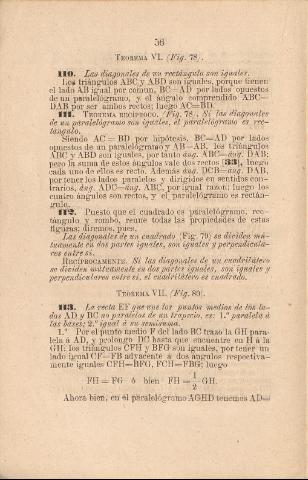 56
TEOREMA VI. (Fig. 78).
110. Las diagonales de un rectángulo son iguales.
Los triángulos ABC y ABD son iguales, porque tienen
el lado AB igual por comun, BC=AD por lados opuestos
de un paralelógramo, y el ángulo comprendido ABC=
DAB por ser ambos rectos; luego AC=BD.
111. TEOREMA RECÍPROCO. (Fig. 78). Si las diagonales
de un paralelógramo son iguales, el paralelógramo es rec-
tángulo.
Siendo AC=BD por hipótesis, BC=AD por lados
opuestos de un paralelógramo y AB=AB, los triángulos
ABC y ABD son iguales, por tanto áng. ABC=áng. DAB;
pero la suma de estos ángulos vale dos rectos [33], luego
cada uno de ellos es recto. Además áng. DCB=áng. DAB,
por tener los lados paralelos y dirigidos en sentidos con-
trarios, áng. ADC=áng. ABC, por igual razon; luego los
cuatro ángulos son rectos, y el paralelógramo es rectán-
gulo.
112. Puesto que el cuadrado es paralelógramo, rec-
tángulo y rombo, reune todas las propiedades de estas
figuras; diremos, pues.
Las diagonales de un cuadrado (Fig. 79) se dividen mú-
tuamente en dos partes iguales, son iguales y perpendicula-
res entre sí.
RECÍPROCAMENTE. Si las diagonales de un cuadrilátero
se dividen mútuamente en dos partes iguales, son iguales y
perpendiculares entre sí, el cuadrilátero es cuadrado.
TEOREMA VII. (Fig. 80).
113. La recta EF que une los puntos medios de los la-
dos AD y BC no paralelos de un trapecio, es: 1.º paralela á
las bases; 2.º igual á su semisuma.
1.º Por el punto medio F del lado BC trazo la GH para-
lela á AD, y prolongo DC hasta que encuentre en H á la
GH; los triángulos CFH y BFG son iguales, por tener un
lado igual CF=FB adyacente á dos ángulos respectiva-
mente iguales CFH=BFG, FCH=FBG; luego
FH=FG ó bien FH=1/2 GH.
Ahora bien, en el paralelógramo AGHD tenemos AD=